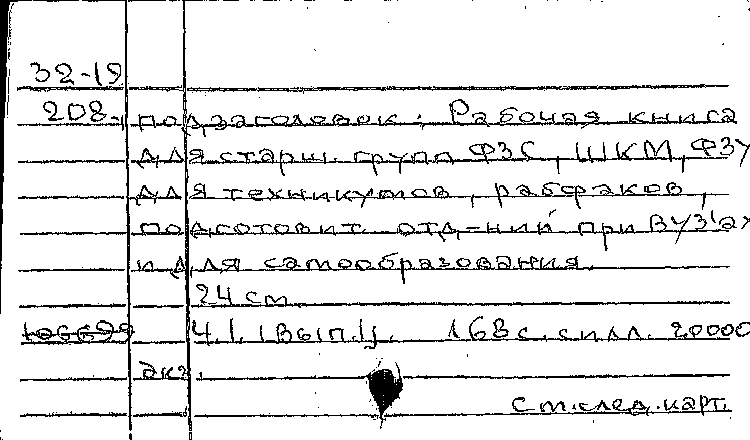 32-19
208. подзаголовок: Рабочая книга
для старш. групп ФЗС, ШКМ, ФЗУ
для техникумов, рабфаков,
подготовит. отд-ний при ВУЗ'ах
и для самообразования.
24 см.
Ч. 1. [Вып. 1]. 168 с. с илл. 20000
экз.
См. след. карт.